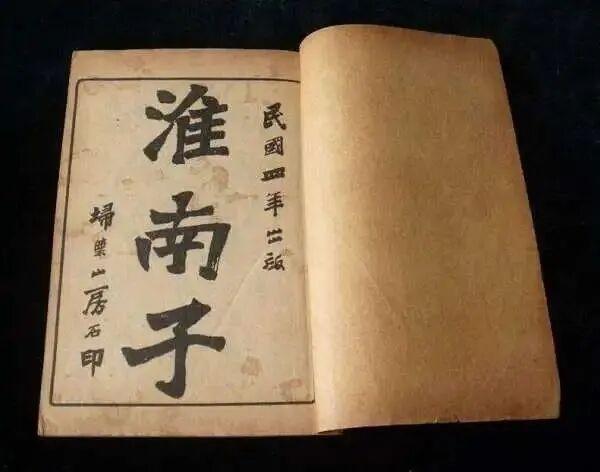 民國四年出版
淮南子
埽葉山房石印